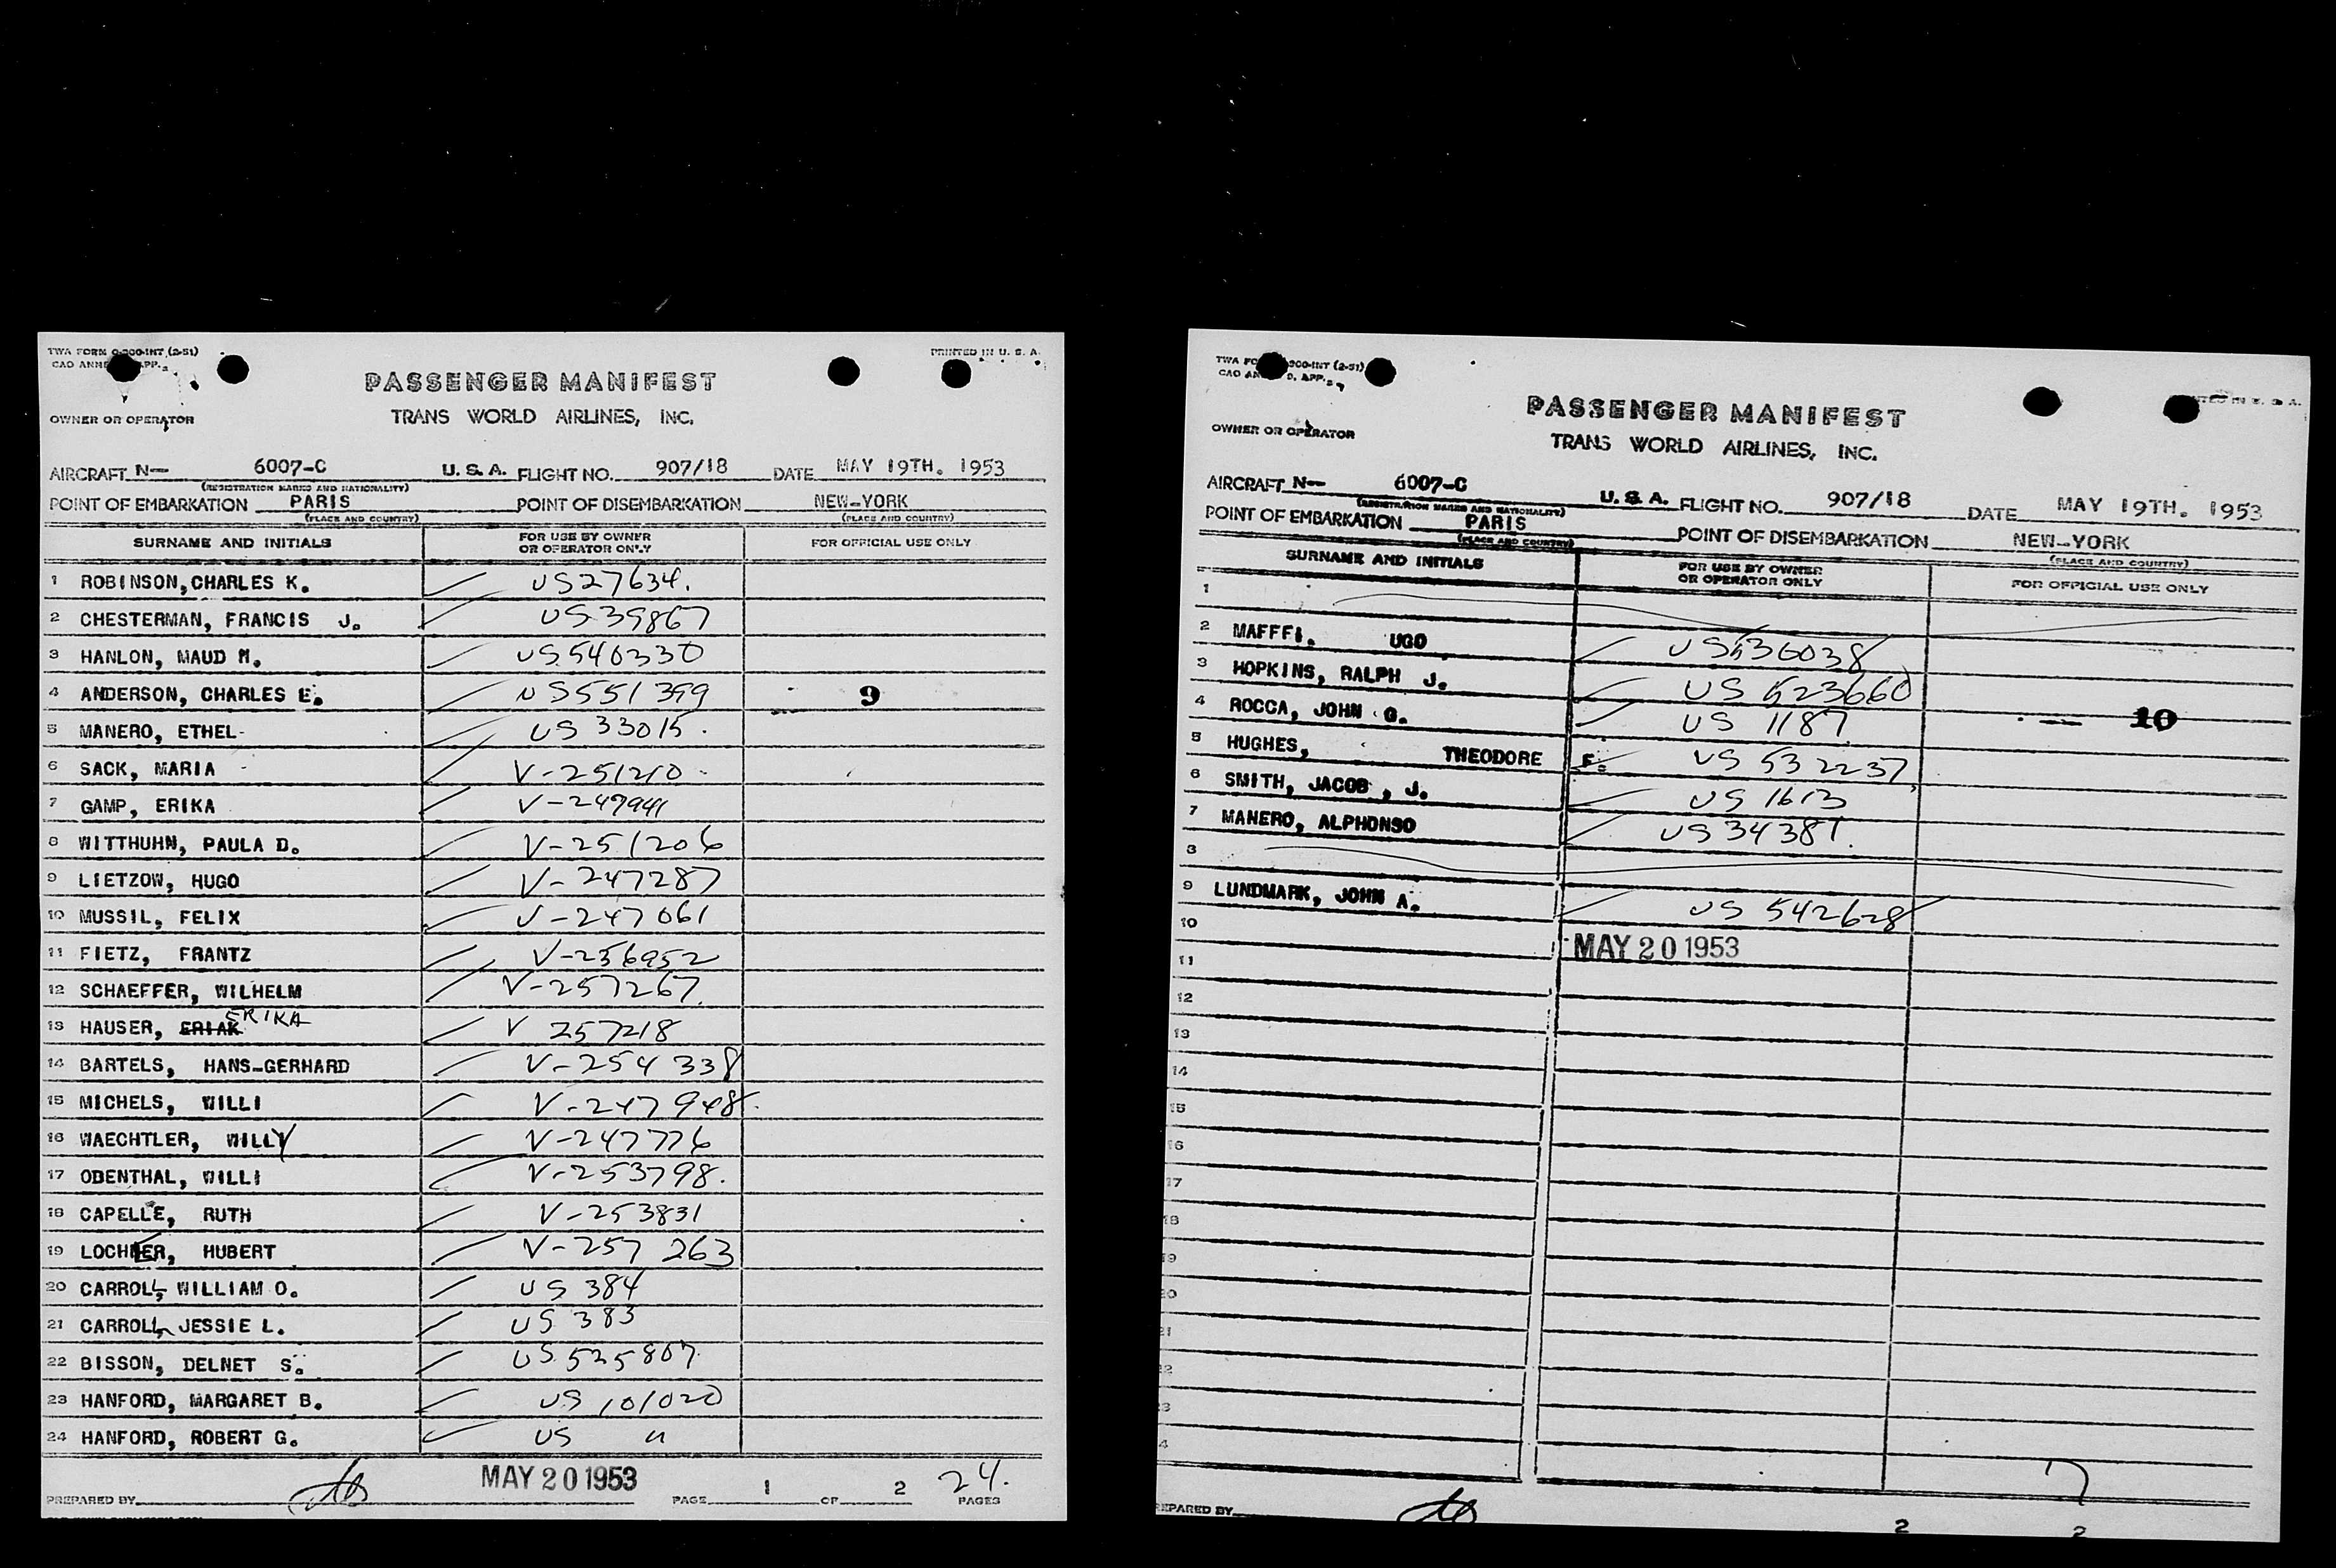 TWA FORM
CAO
PRINTED IN U. S. A.
PASSENGER MANIFEST
TRANS WORLD AIRLINES, INC.
OWNER OR OPERATOR
AIRCRAFT N— 6007-C U. S. A. FLIGHT NO. 907/18 DATE MAY 19TH. 1953
(REGISTRATION MARKS AND NATIONALITY)
POINT OF EMBARKATION PARIS POINT OF DISEMBARKATION NEW-YORK
(PLACE AND COUNTRY) (PLACE AND COUNTRY)
SURNAME AND INITIALS FOR USE BY OWNER OR OPERATOR ONLY FOR OFFICIAL USE ONLY
1 ROBINSON, CHARLES K. US27634.
2 CHESTERMAN, FRANCIS J. US39867
3 HANLON, MAUD M. US540330
4 ANDERSON, CHARLES E. US551399 9
5 MANERO, ETHEL- US 33015.
6 SACK, MARIA - V-251210.
7 GAMP, ERIKA V-247941
8 WITTHUHN, PAULA D. V-251206
9 LIETZOW, HUGO V-247287
10 MUSSIL, FELIX V-247061
11 FIETZ, FRANTZ V-256952
12 SCHAEFFER, WILHELM V-257267.
13 HAUSER, ERIAK ERIKA V 257218
14 BARTELS, HANS-GERHARD V-254 338
15 MICHELS, WILLI V-247948.
16 WAECHTLER, WILLY V-247776
17 ODENTHAL, WILLI V-253798.
18 CAPELLE, RUTH V-253831
19 LOCHNER, HUBERT V-257 263
20 CARROLL, WILLIAM O. US 384
21 CARROLL, JESSIE L. US 383
22 BISSON, DELNET S. US 525807.
23 HANFORD, MARGARET B. US 101020
24 HANFORD, ROBERT G. US "
MAY 20 1953 24.
PREPARED BY PAGE 1 OF 2 PAGES
TWA
CAO
PASSENGER MANIFEST
TRANS WORLD AIRLINES, INC.
OWNER OR OPERATOR
AIRCRAFT N— 6007-C U. S. A. FLIGHT NO. 907/18 DATE MAY 19TH. 1953
(REGISTRATION MARKS AND NATIONALITY)
POINT OF EMBARKATION PARIS POINT OF DISEMBARKATION NEW-YORK
(PLACE AND COUNTRY) (PLACE AND COUNTRY)
SURNAME AND INITIALS FOR USE BY OWNER OR OPERATOR ONLY FOR OFFICIAL USE ONLY
1
2 MAFFFI. UGO US536038
3 HOPKINS, RALPH J. US 523660
4 ROCCA, JOHN G. US 1187 10
5 HUGHES, THEODORE F. US 532237
6 SMITH, JACOB, J. US 1613
7 MANERO, ALPHONSO US 34381.
8
9 LUNDMARK, JOHN A. US 542628
10 MAY 20 1953
11
12
13
14
15
16
17
18
19
20
21
22
23
24
7
PREPARED BY 2 2